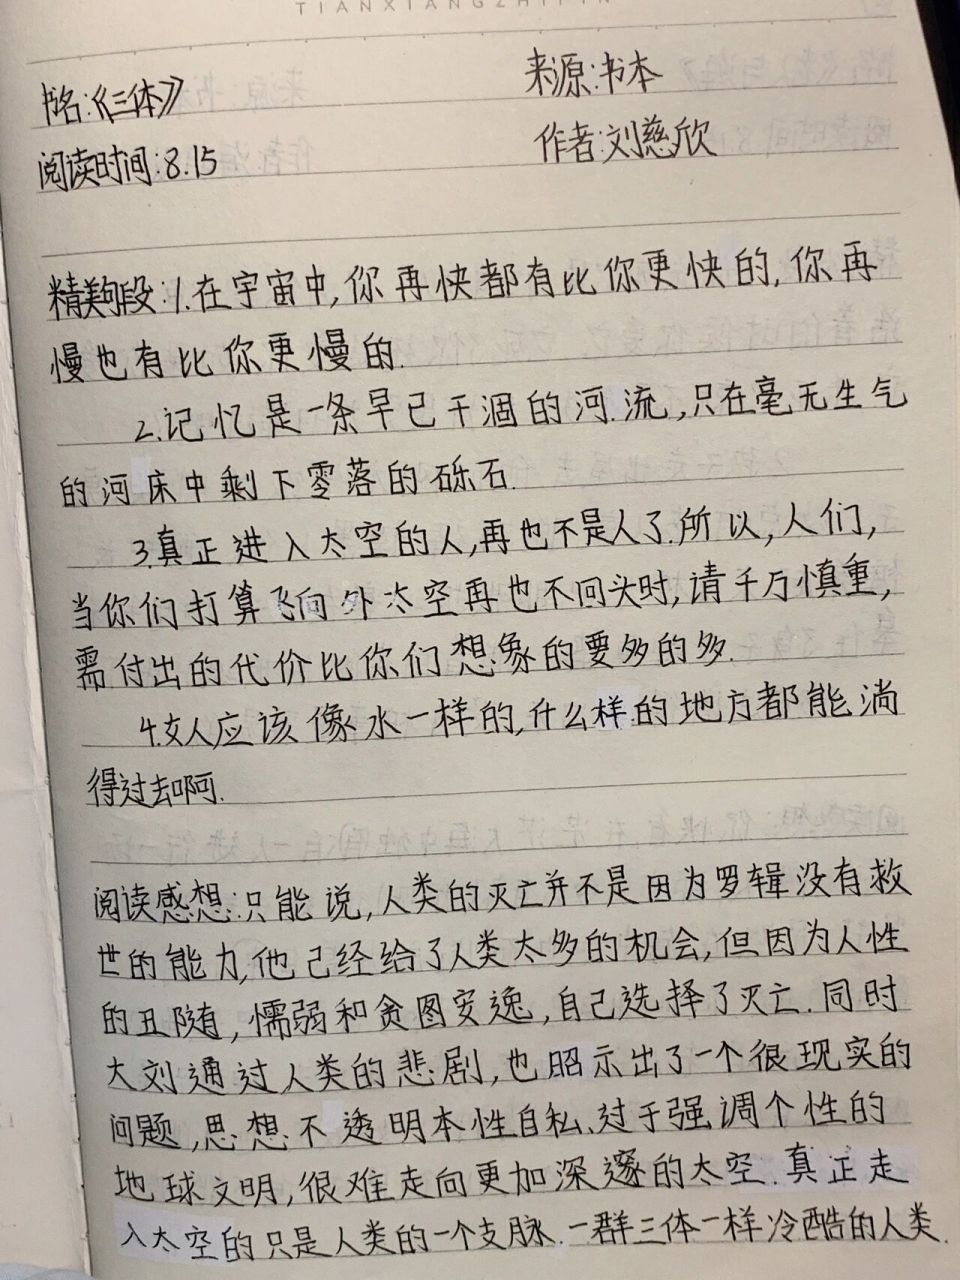 TIANXIANGZHIPIN
书名:《三体》
来源:书本
阅读时间:8.15
作者:刘慈欣
精美句段:1.在宇宙中,你再快都有比你更快的,你再
慢也有比你更慢的.
2.记忆是一条早已干涸的河流,只在毫无生气
的河床中剩下零落的砾石.
3.真正进入太空的人,再也不是人了.所以,人们,
当你们打算飞向外太空再也不回头时,请千万慎重,
需付出的代价比你们想象的要多的多.
4.女人应该像水一样的,什么样的地方都能淌
得过去啊.
阅读感想:只能说,人类的灭亡并不是因为罗辑没有救
世的能力,他已经给了人类太多的机会,但因为人性
的丑陋,懦弱和贪图安逸,自己选择了灭亡.同时
大刘通过人类的悲剧,也昭示出了一个很现实的
问题,思想不透明本性自私、过于强调个性的
地球文明,很难走向更加深邃的太空.真正走
入太空的只是人类的一个支脉.一群三体一样冷酷的人类.